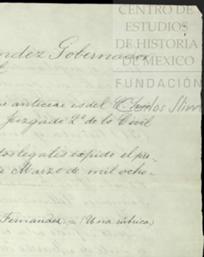 CENTRO DE
ESTUDIOS
DE HISTORIA
DE MEXICO
FUNDACIÓN
ndez Gobernador
que antecede es del C. Carlos
Juzgado 2º de lo Civil
tos legales expido el pre-
Marzo de mil ocho-
Fernandez = (Una rúbrica